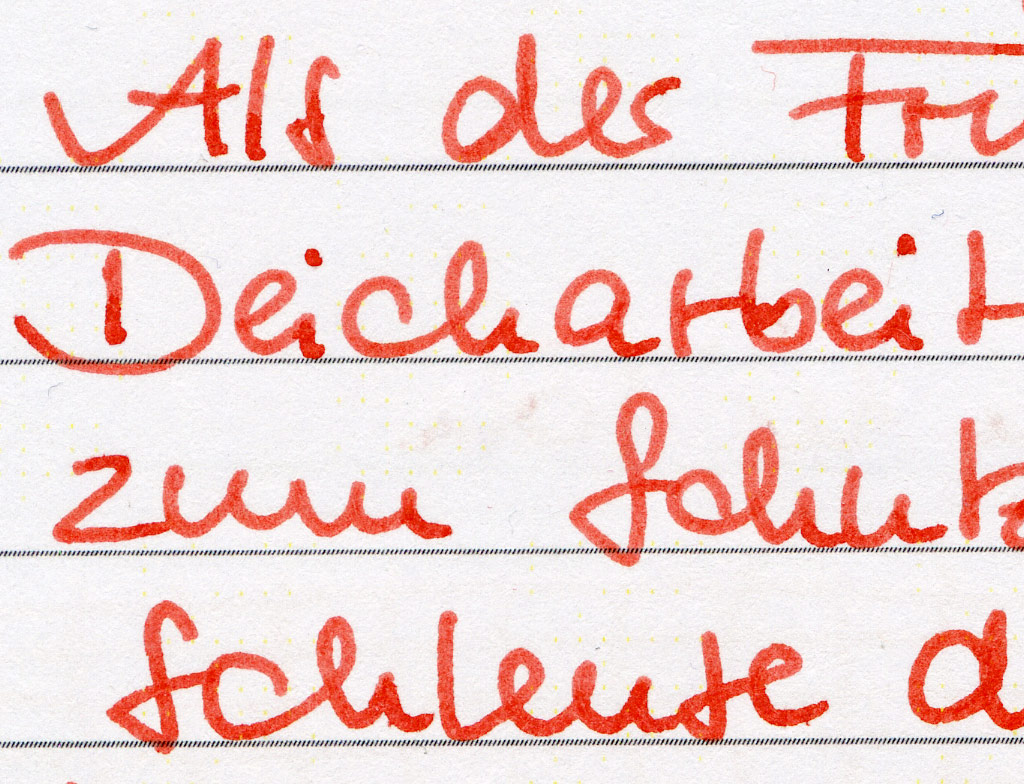 Als des Fru
Deicharbeit
zum Schutz
Schleuse d